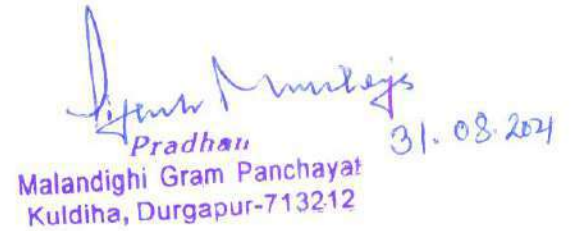 31.08.2021
Pradhan
Malandighi Gram Panchayat
Kuldiha, Durgapur-713212